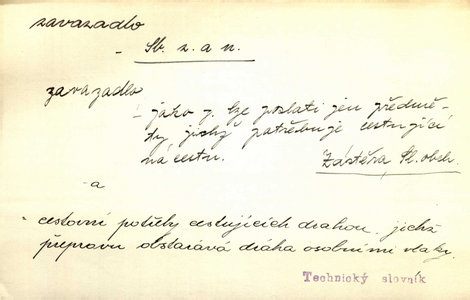 zavazadlo
- Sb. z. a n.
zavazadlo
- jako z. lze poslati jen předmě-
ty jichž potřebuje cestující
na cestu.
Zástěra Sl. obch.
- a
- cestovní potřeby cestujících drahou, jichž
přepravu obstarává dráha osobními vlaky.
Technický slovník